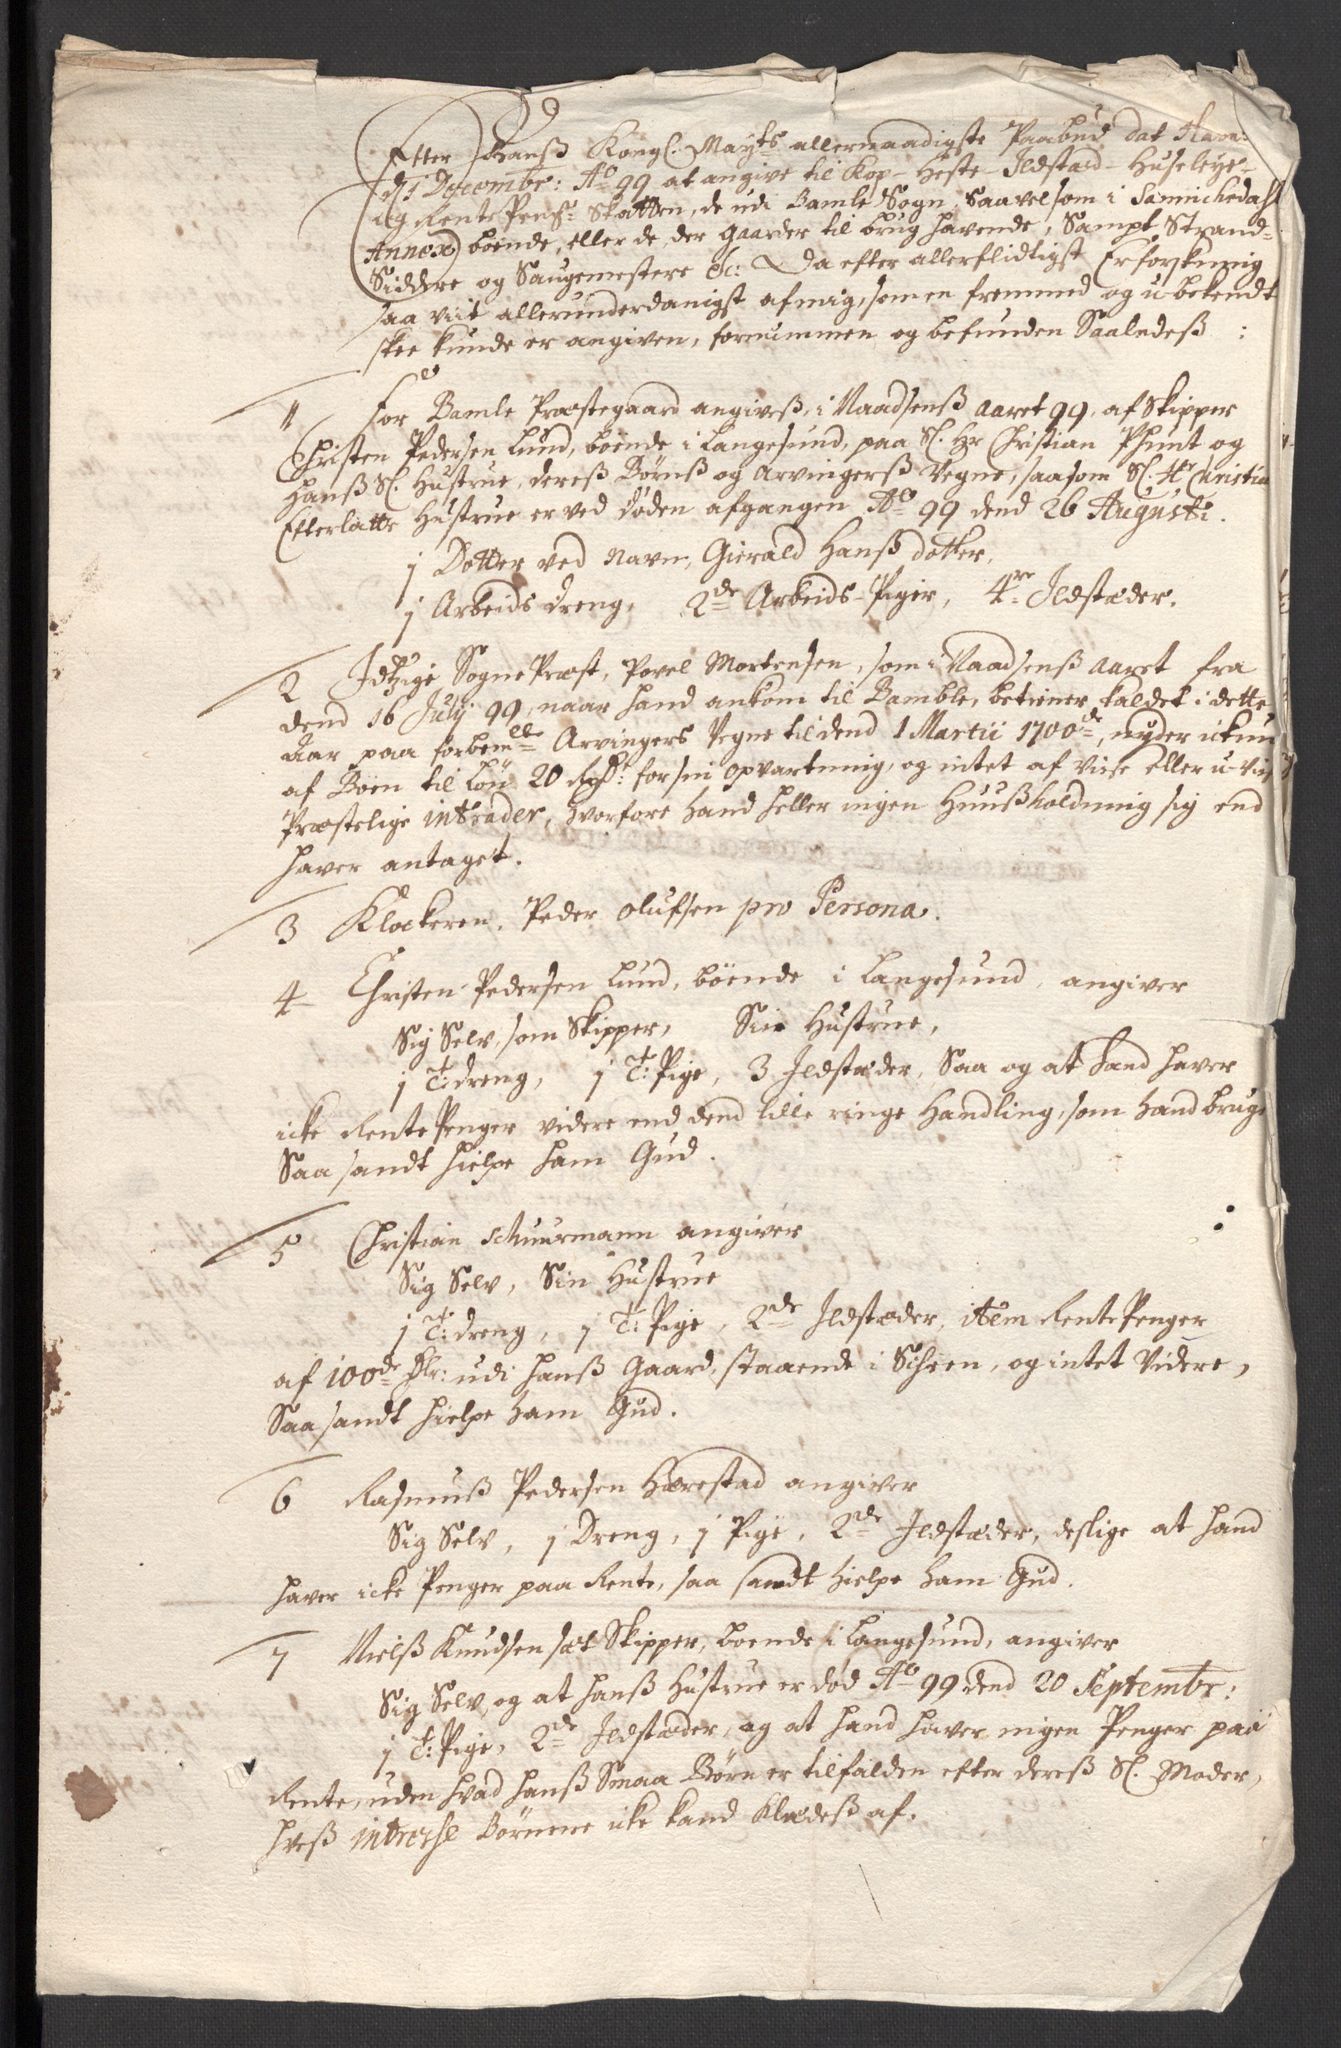 Efter Hanß Kongl: Mayts allernaadigste Paabud dat Hafn:
d: 1 Decembr: Ao 99 at angive til Kop- Heste- Ildstæd- Huseleye-
og Rente Peng: Skatten, de udi Bamle Sogn, Saavelsom i Sannickedahl
Annex) boende, eller de der Gaarder til brug havende, Sampt Strand-
Siddere og Saugemestere &c: Da efter allerflidtigst Erforskning
saa viit allerunderdanigst af mig, som en fremmed og ubekendt
skee kunde er angiven, fornummen og befunden Saaledeß :
1 For Bamle Præstegaard angiveß, i Naadsenß aaret 99, af Skipper
Christen Pedersen Lund, böende i Langesund, paa Sl. Hr Christian Phunt og
Hanß Sl. Hustrue, dereß Börnß og Arvingerß Vegne, saasom Sl. Hr Christians
Efterlatte Hustrue er ved döden afgangen Ao 99 dend 26 Augusti.
1 Dotter ved Navn, Gierald Hanß dotter,
1 Arbeids dreng, 2de Arbeids-Piger, 4re Ildstæder.
2 Idtzige Sogne Præst, Povel Mortensen, som i Naadsenß aaret fra
dend 16 Julij 99, naar hand ankom til Bamble, betiener kaldet i dette
Aar paa forbemlte Arvingers Vegne til dend 1 Martii 1700de, nyder ickun
af Boen til Lön 20 Rdr: for sin opvartning, og intet af visse eller u-vis
Præstelige intrader, hvorfore hand heller ingen Huußholdning sig end
haver antaget.
3 Klockeren, Peder Olufsen pro Persona.
4 Christen Pedersen Lund, böende i Langesund, angiver
Sig Selv, som Skipper, Sin Hustrue,
1 T: dreng, 1 T: Pige, 3 Ildstæder, Saa og at hand haver
icke Rente Penger videre end dend lille ringe Handling, som hand bruge
Saa sandt hielpe ham Gud.
5 Christian Schuurmann angiver
Sig Selv, Sin Hustrue
1 T: dreng, 1 T: Pige, 2de Ildstæder, item Rente Penger
af 100de Rdlr: udi hanß Gaard, staaende i Scheen, og intet Videre,
Saa sandt hielpe ham Gud.
6 Rasmuß Pedersen Hærestad angiver
Sig Selv, 1 Dreng, 1 Pige, 2de Ildstæder, deslige at hand
haver icke Penger paa Rente, saa sandt hielpe ham Gud.
7 Nielß Knudsen sæt Skipper, boende i Langesund, angiver
Sig Selv, og at hanß Hustrue er död Ao 99 dend 20 Septembr:
1 T: Pige, 2de Ildstæder, og at hand haver ingen Penger paa
Rente, uden hvad hanß Smaa Börn er tilfalden efter dereß Sl. Moder,
hveß interesse Börnene icke kand Klædeß af.